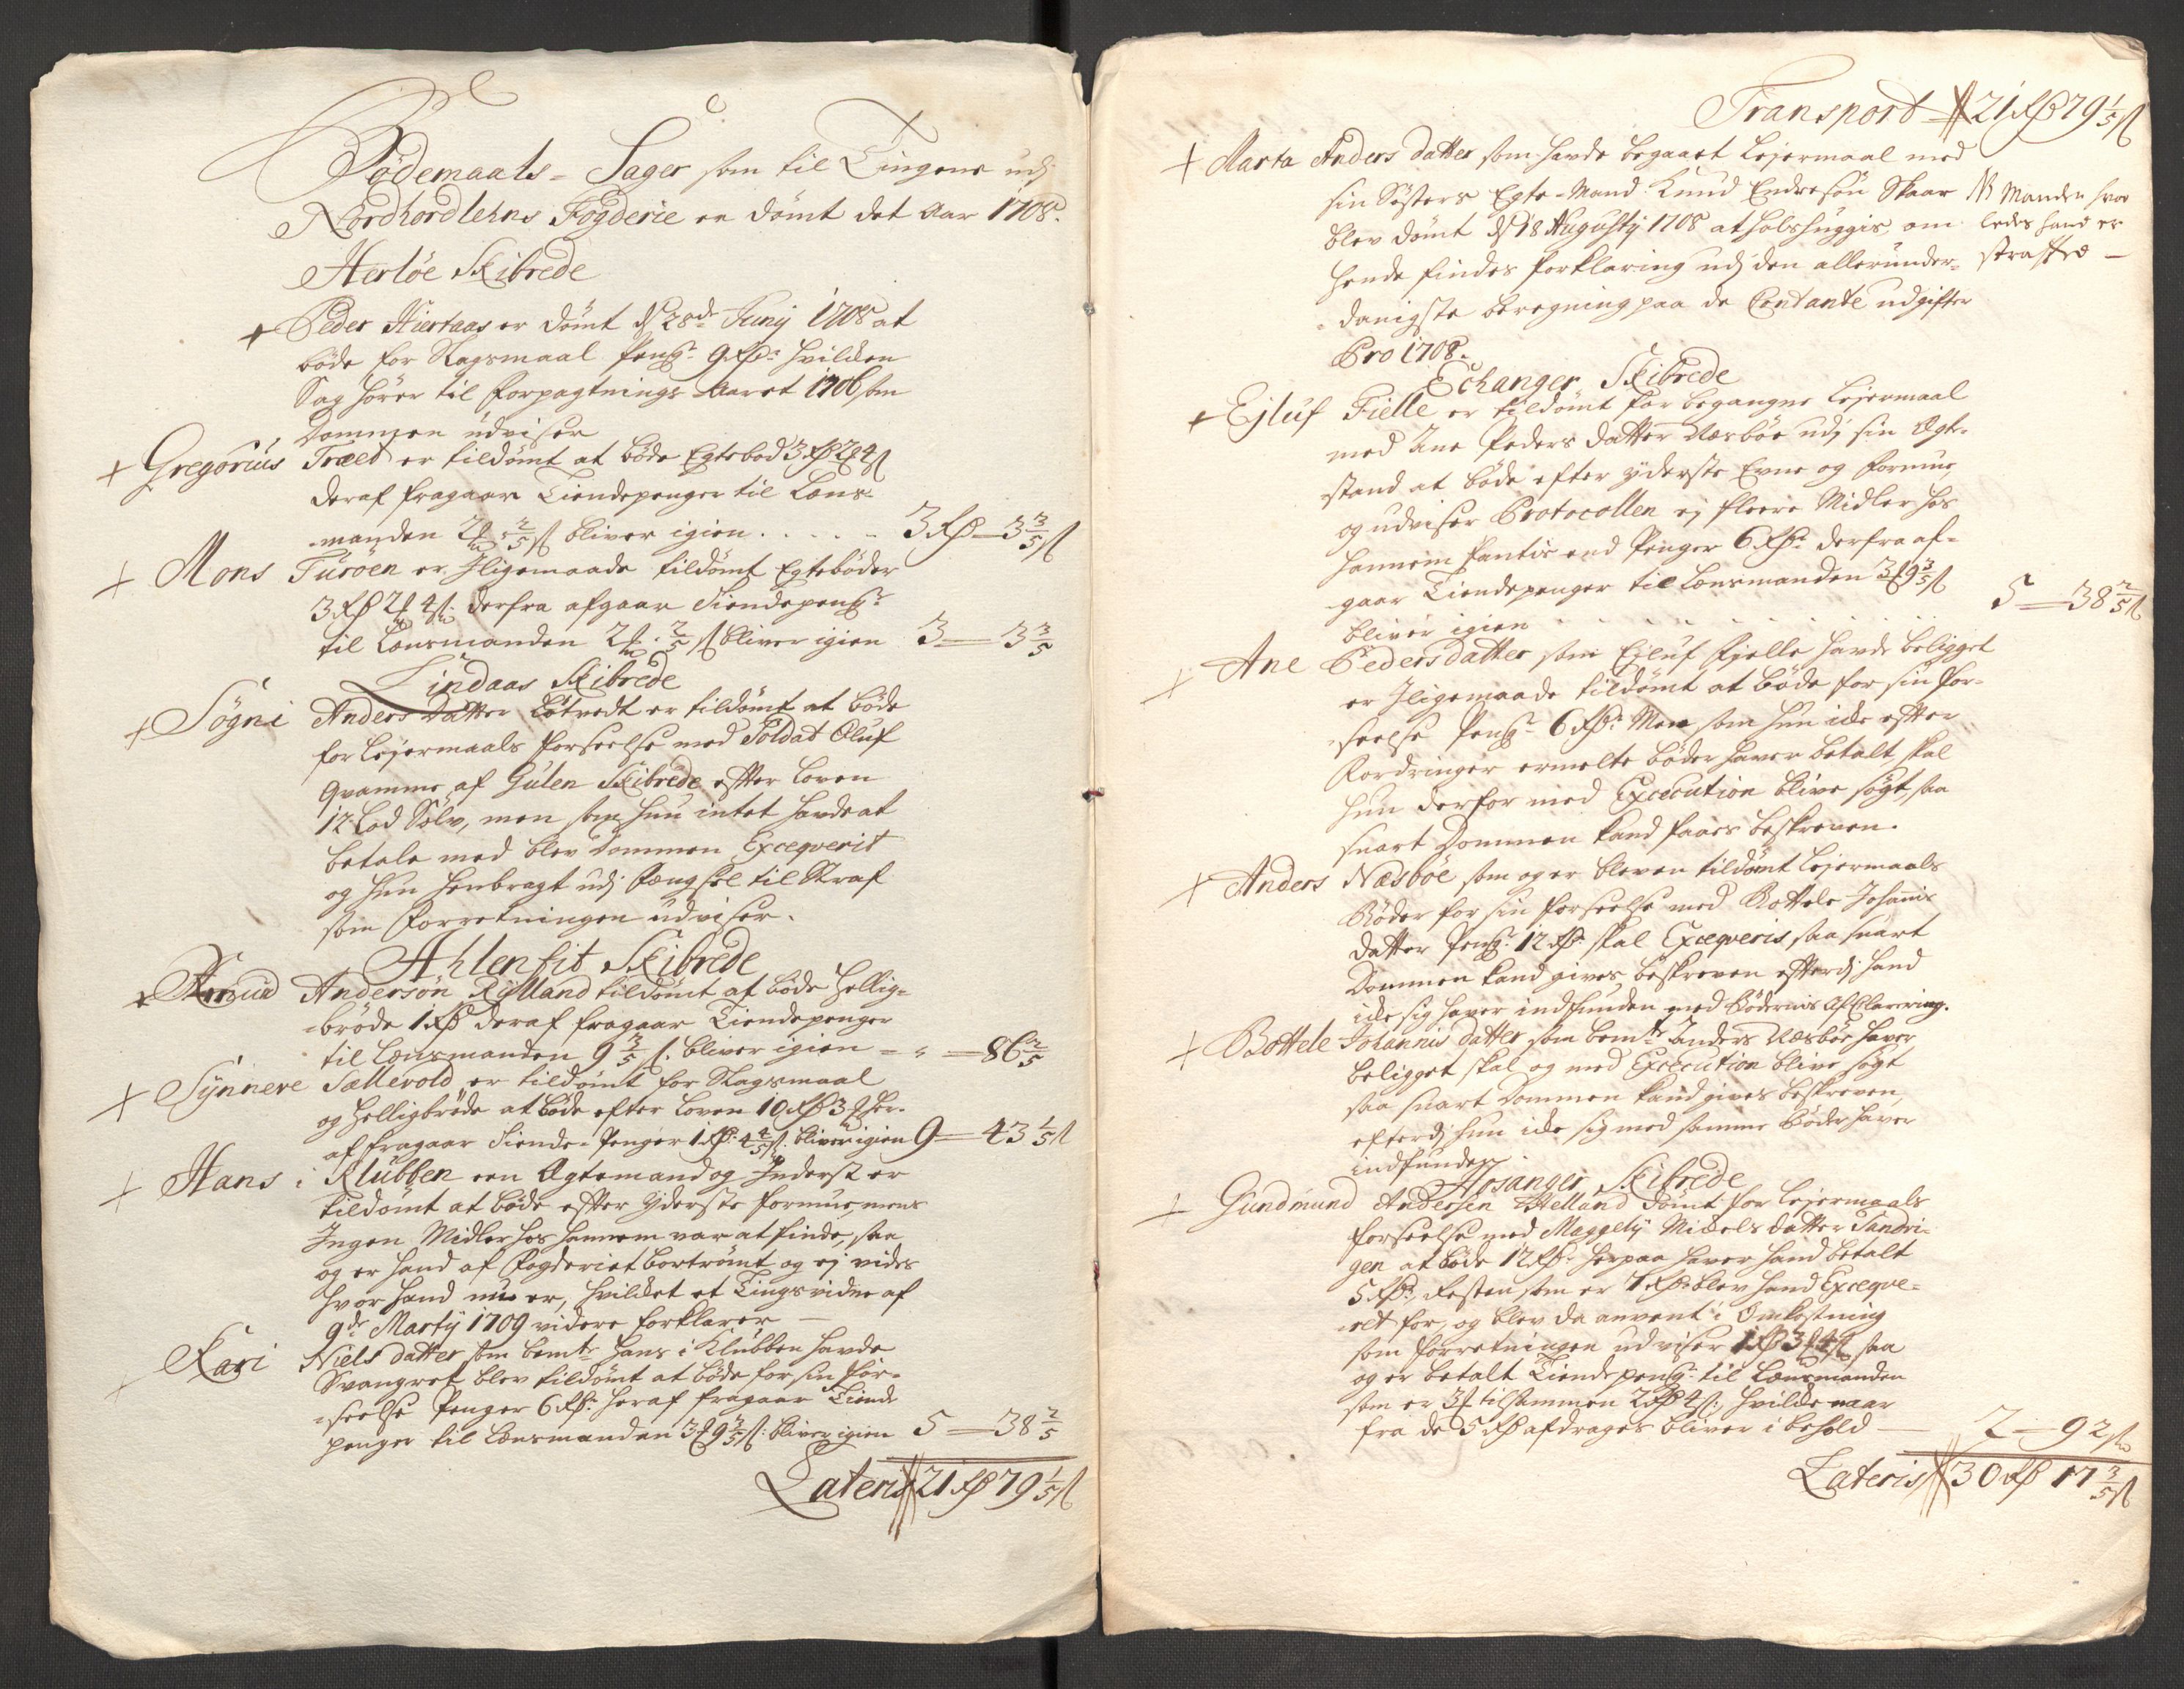 Bödemaals-Sager som til Tingene udj
Nordhordlehns Fogderie er dömt det Aar 1708.
Herlöe Skibrede
+ Peder Hiertaas er dömt d 28de Junij 1708 at
böde for Slagsmaal Peng: 9 Rdr hvilken
Sag hörer til forpagtnings Aaret 1706 som
Dommen udviser
+ Gregorius Træld er tildömt at böde Egtebod 3 Rd 2 4 s
deraf fragaar Tiendepenger til Lens-
manden 2 2/5 s bliver igien . . . . . 3 Rd – 3 3/5 s
+ Mons Turöen er Jligemaade tildömt Egteböder
3 Rd 2 4 s: derfra afgaar Tiendepeng:
til Lensmanden 2 2/5 s bliver igien 3 – 3 3/5
Lindaas Skibrede
+ Sögni Anders datter Lötvedt er tildömt at böde
for Lejermaals forseelse med Soldat Oluf
Qvamme af Gulen Skibrede efter Loven
12 Lod Sölv, men som hun intet havde at
betale med blev Dommen Exceqverit
og hun henbragt udj Fængsel til Straf
som Forretningen udviser.
Ahlenfit Skibrede
+ Knud Andersön Rylland tildömt at böde Hellig-
bröde 1 Rd deraf fragaar Tiendepenger
til Lensmanden 9 3/5 s. bliver igien – „ – 86 2/5
+ Synneve Sællevold er tildömt for Slagsmaal
og Helligbröde at böde efter Loven 10 Rd 3 her-
af fragaar Tiende-Penger 1 Rd: 4 4/5 s bliver igien 9 – 43 1/5 s
+ Hans i Klubben een Egtemand og Inderst er
tildömt at böde efter yderste formue, mens
Ingen Midler hos hannem var at finde, saa
og er hand af Fogderiet bortrömt og ej vides
hvor hand nu er, hvilket et Tingsvidne af
9de Martij 1709 videre forklarer –
+ Kari Niels datter som bemte Hans i Klubben havde
Svangret blev tildömt at böde for sin for-
seelse Penger 6 Rdr heraf fragaar Tiende
penger til Lensmanden 3 9 3/5 s: bliver igien 5 – 38 2/5
Lateris 21 Rd 79 1/5 s
Transport 21 Rd 79 1/5 s
+ Marta Anders datter som havde begaaet Lejermaal med
sin Sösters Egte-Mand Knud Endresön Skaar
blev dömt d 18 Augusty 1708 at halshuggis, om
hende findes forklaring udj den allerunder-
danigste beregning paa de Contante udgifter
Pro 1708.
NB Manden hvor
ledes hand er
straffed –
Echanger Skibrede
+ Ejluf Fielle er tildömt for begangne Lejermaal
med Ane Peders datter Næsböe udj sin Egte-
stand at böde efter yderste Evne og formue
og udviser Protocollen ej fleere Midler hos
hannem fantis end Penger 6 Rdr derfra af-
gaar Tiendepenger til Lensmanden 3 9 3/5 s
bliver igien . . . . . . 5 – 38 2/5 s
+ Ane Pedersdatter som Ejluf Fielle havde beligget
er Jligemaade tildömt at böde for sin for-
seelse Peng: 6 Rdr Men som hun icke efter
Fordringer ermelte böder haver betalt, skal
hun derfor med Excecution blive sögt, saa
snart Dommen kand faaes beskreven.
+ Anders Næsböe som og er bleven tildömt Lejermaals
Böder for sin forseelse med Bottele Johannis
datter Peng: 12 Rdr skal Exceqveris saa snart
Dommen kand gives beskreven efterdj hand
icke sig haver indfunden med Bödernis af Clarering.
+ Bottele Johannis datter som bemte Anders Næsböe haver
beligget skal og med Excecution blive sögt
saa snart Dommen kand gives beskreven,
efterdj hun icke sig med samme Böder haver
indfunden
Hosanger Skibrede
+ Gundmund Andersen Helland dömt for Lejermaals
forseelse med Maggely Mickels datter Tandri-
gen at böde 12 Rdr herpaa haver hand betalt
5 Rdr, Resten som er 7 Rdr blev hand Exceqve-
ret for, og blev da anvent i Omkostning
som forretningen udviser 1 Rd 3 4 s saa
og er betalt Tiendepeng: til Lensmanden
som er 3 tilsammen 2 Rd 4 s:, hvilke naar
fra de 5 Rd afdrages bliver i behold – 2 – 92 s
Lateris 30 Rd 17 3/5 s